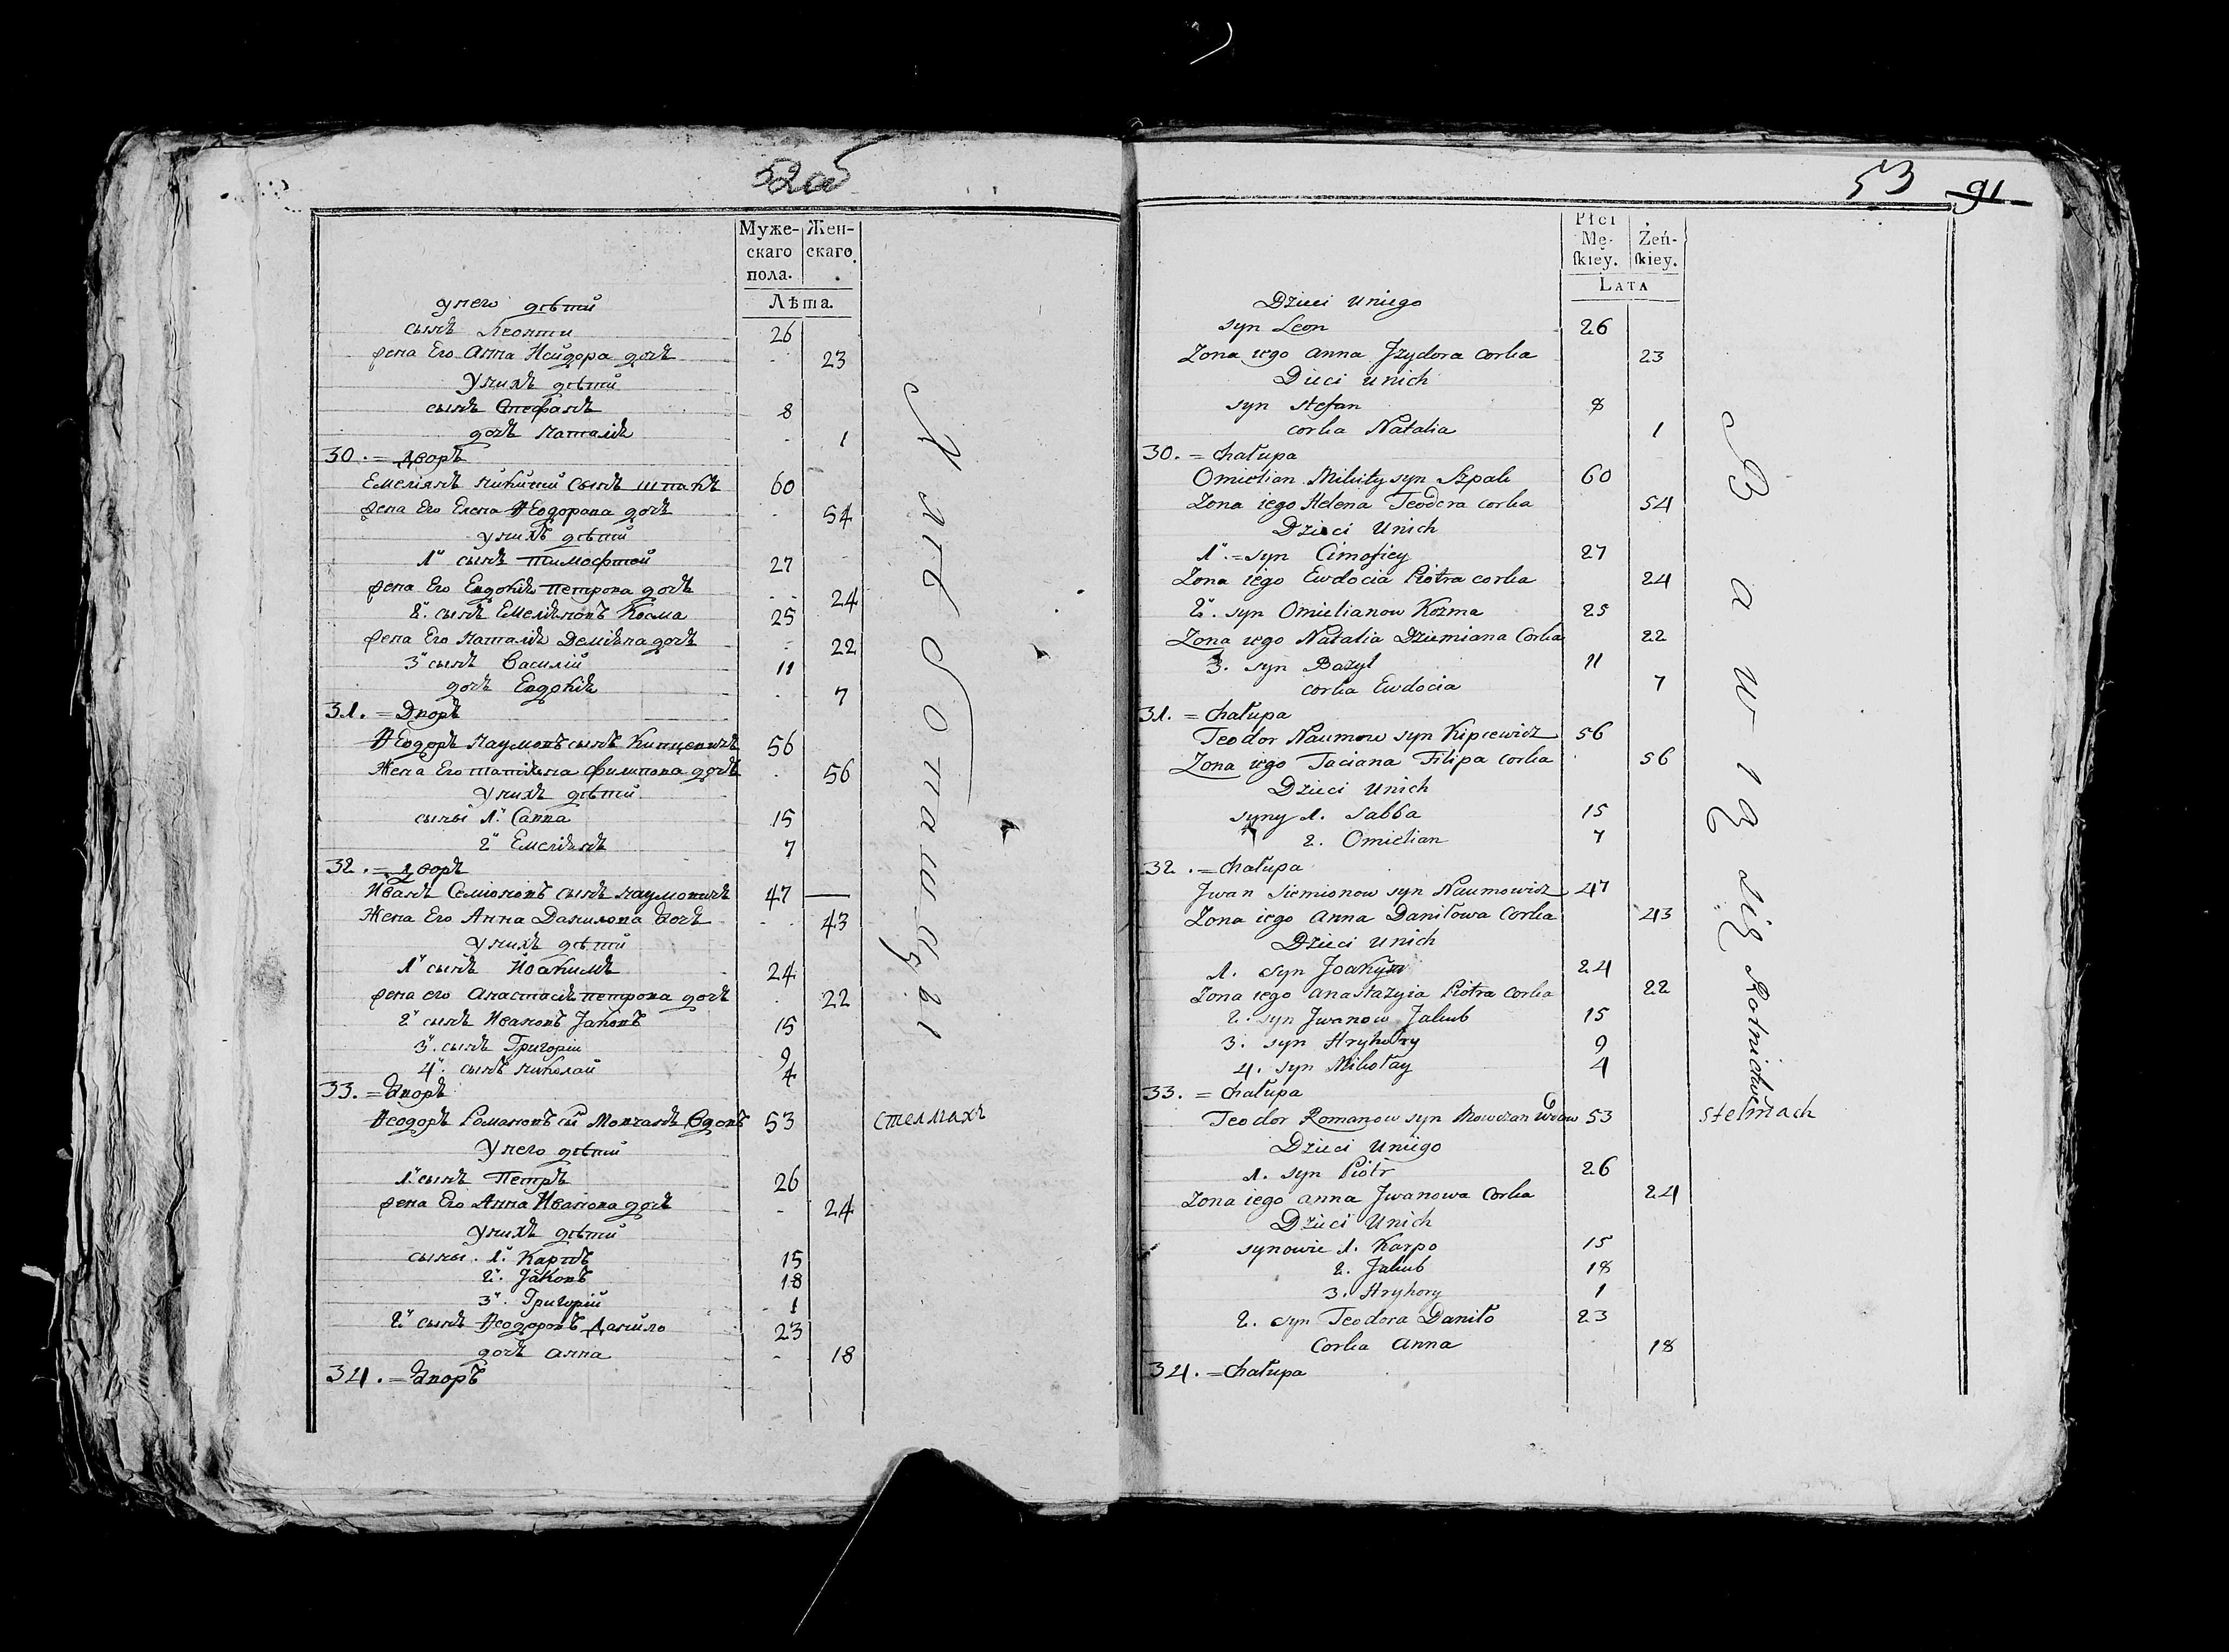 52об
Муже- Жен-
скаго скаго.
пола.
Лѣта.
у него дѣтй
сынъ Леонти 26
жена Его Анна Исидора дочь 23
У нихъ дѣтй
сынъ Стефанъ 8
дочь Наталія 1
30. = дворъ
Емеліянъ Никитй Сынъ Шпакъ 60
жена Его Елена Ѳеодорова дочь 54
у нихъ дѣтй
1й сынъ Тимофтей 27
жена Его Евдокія Петрова дочь 24
2й. сынъ Емеліяновъ Косма 25
жена Его Наталія Деміяна дочь 22
3й сынъ Василій 11
дочь Евдокія 7
31. = Дворъ
Ѳеодоръ Наумовъ сынъ Кипцевичъ 56
Жена Его татіяна Филипова дочь 56
У нихъ дѣтй
сыны 1й. Савва 15
2й Емеліянъ 7
32. = дворъ
Иванъ Семіоновъ сынъ Наумовичъ 47
Жена Его Анна Данилова дочь 43
У нихъ дѣтй
1й сынъ Иоакимъ 24
жена его Анастасія петрова дочь 22
2й сынъ Ивановъ Jаковъ 15
3й. сынъ Григорій 9
4й. сынъ Николай 4
33. = дворъ
Ѳеодоръ Романовъ сы Мовчанъ Вдовъ 53 Стелмахъ
У него дѣтй
1й сынъ Петръ 26
жена Его Анна Иванова дочь 24
У нихъ дѣтй
сыны. 1й. Карпъ 15
2й. Jаковъ 18
3й. Григорій 1
2й сынъ Ѳеодоровъ данило 23
дочь анна 18
34. = дворъ
53 91
Płci
Mę- Żeń-
skiey. skiey.
LATA
Dzieci uniego
syn Leon 26
Zona iego Anna Jzydora corka 23
Dzieci unich
syn Stefan 8
corka Natalia 1
30. = Chałupa
Omielian Mikity syn Szpak 60
Zona iego Helena Teodora corka 54
Dzieci Unich
1й. = syn Cimofiey 27
Zona iego Ewdocia Piotra corka 24
2й. syn Omielianow Kozma 25
Zona iego Natalia Dziemiana Corka 22
3. syn Bazyl 11
corka Ewdocia 7
31. = Chałupa
Teodor Naumow syn Kipcewicz 56
Zona iego Taciana Filipa corka 56
Dzieci Unich
syny 1. Sabba 15
2. Omielian 7
32. = Chałupa
Jwan Siemionow syn Naumowicz 47
Zona iego Anna Daniłowa Corka 43
Dzieci Unich
1. syn Joakym 24
Zona iego Anastazyia Piotra Corka 22
2. syn Jwanow Jakub 15
3. syn Hryhory 9
4. syn Mikołay 4
33. = Chałupa
Teodor Romanow syn Mowczan Wdow 53 Stelmach
Dzieci Uniego
1. syn Piotr 26
Zona iego anna Jwanowa Corka 24
Dzieci Unich
synowie 1. Karpo 15
2. Jakub 18
3. Hryhory 1
2. syn Teodora Daniło 23
Corka Anna 18
34. = Chałupa
Bawią się Rolnictwem